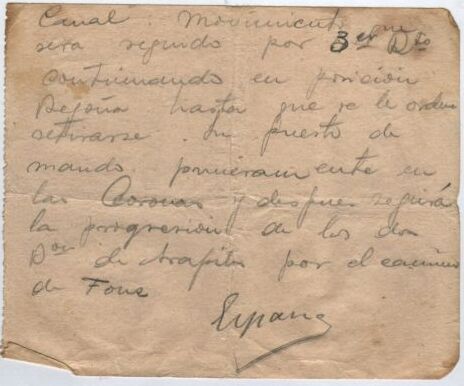 Canal. Movimiento
sera seguido por 3er Dto
continuando en posición
hasta que se le ordene
retirarse. Su puesto de
mando primeramente en
las Coronas y despues seguirá
la progresion de los dos
Dos de Arapiles por el camino
de Fonz